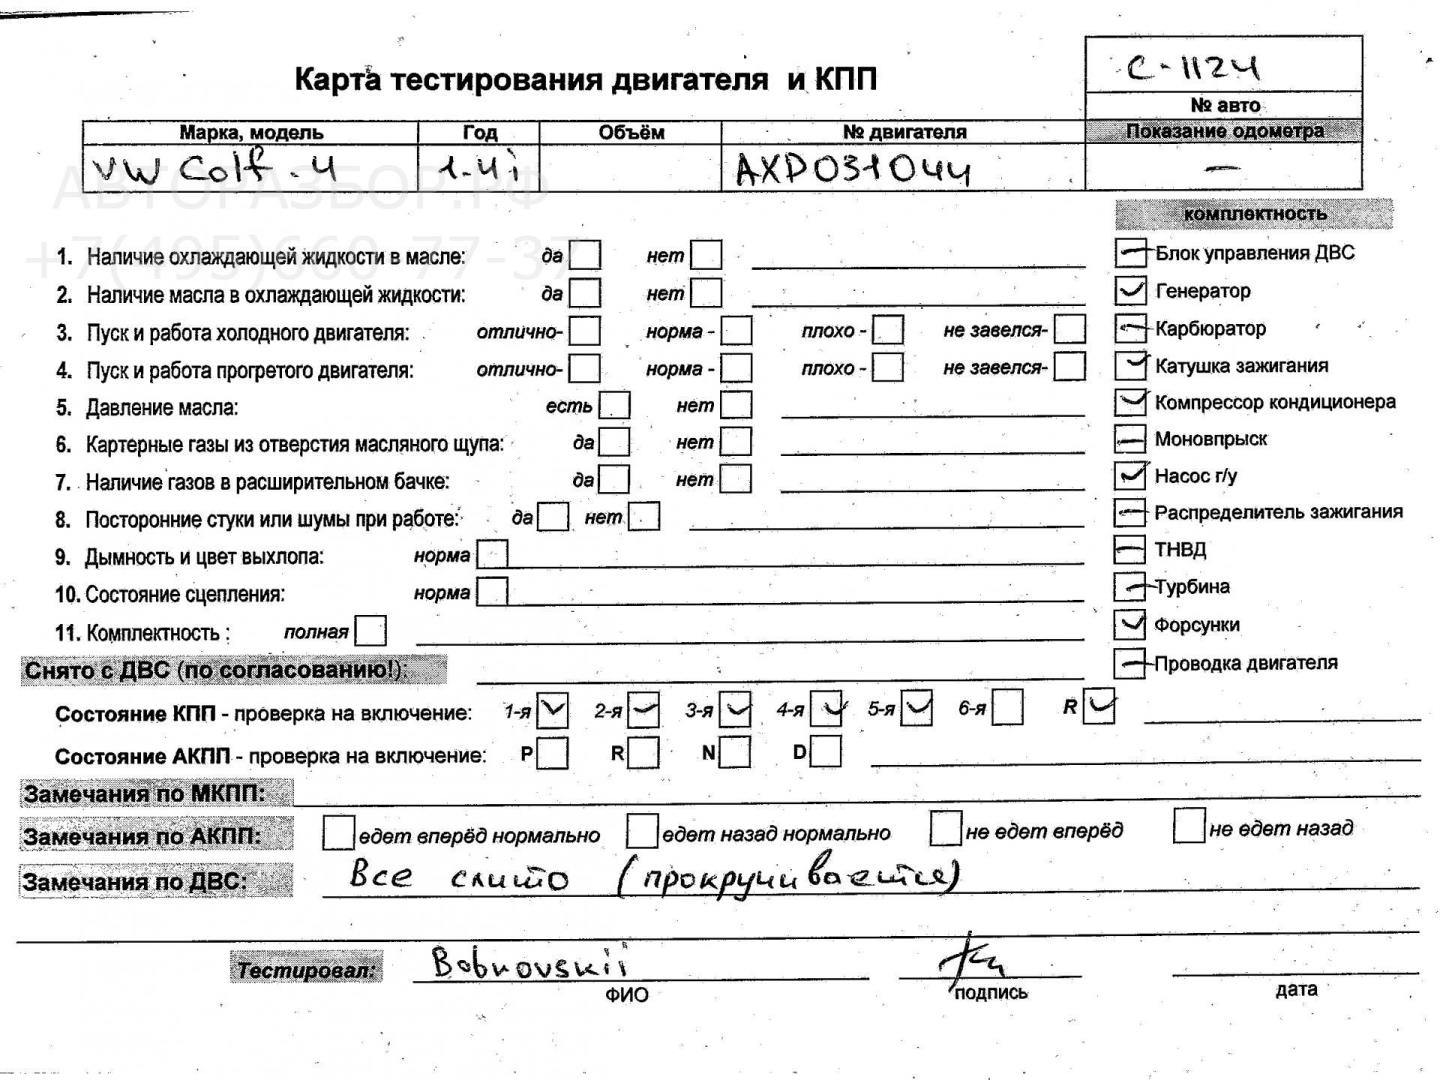 С-1124
Карта тестирования двигателя и КПП
№ авто
Марка, модель Год Объём № двигателя Показание одометра
VW Golf-4 1.4i AXP031044 —
АВТОРАЗБОР.РФ
+7(495)660-77-37
комплектность
1. Наличие охлаждающей жидкости в масле: да нет
Блок управления ДВС
2. Наличие масла в охлаждающей жидкости: да нет
Генератор
3. Пуск и работа холодного двигателя: отлично- норма - плохо - не завелся-
Карбюратор
4. Пуск и работа прогретого двигателя: отлично- норма - плохо - не завелся-
Катушка зажигания
5. Давление масла: есть нет
Компрессор кондиционера
6. Картерные газы из отверстия масляного щупа: да нет
Моновпрыск
7. Наличие газов в расширительном бачке: да нет
Насос г/у
8. Посторонние стуки или шумы при работе: да нет
Распределитель зажигания
9. Дымность и цвет выхлопа: норма
ТНВД
10. Состояние сцепления: норма
Турбина
11. Комплектность : полная
Форсунки
Снято с ДВС (по согласованию!):
Проводка двигателя
Состояние КПП - проверка на включение: 1-я 2-я 3-я 4-я 5-я 6-я R
Состояние АКПП - проверка на включение: P R N D
Замечания по МКПП:
Замечания по АКПП: едет вперёд нормально едет назад нормально не едет вперёд не едет назад
Замечания по ДВС: Все слито (прокручивается)
Тестировал: Bobrovskii
ФИО подпись дата